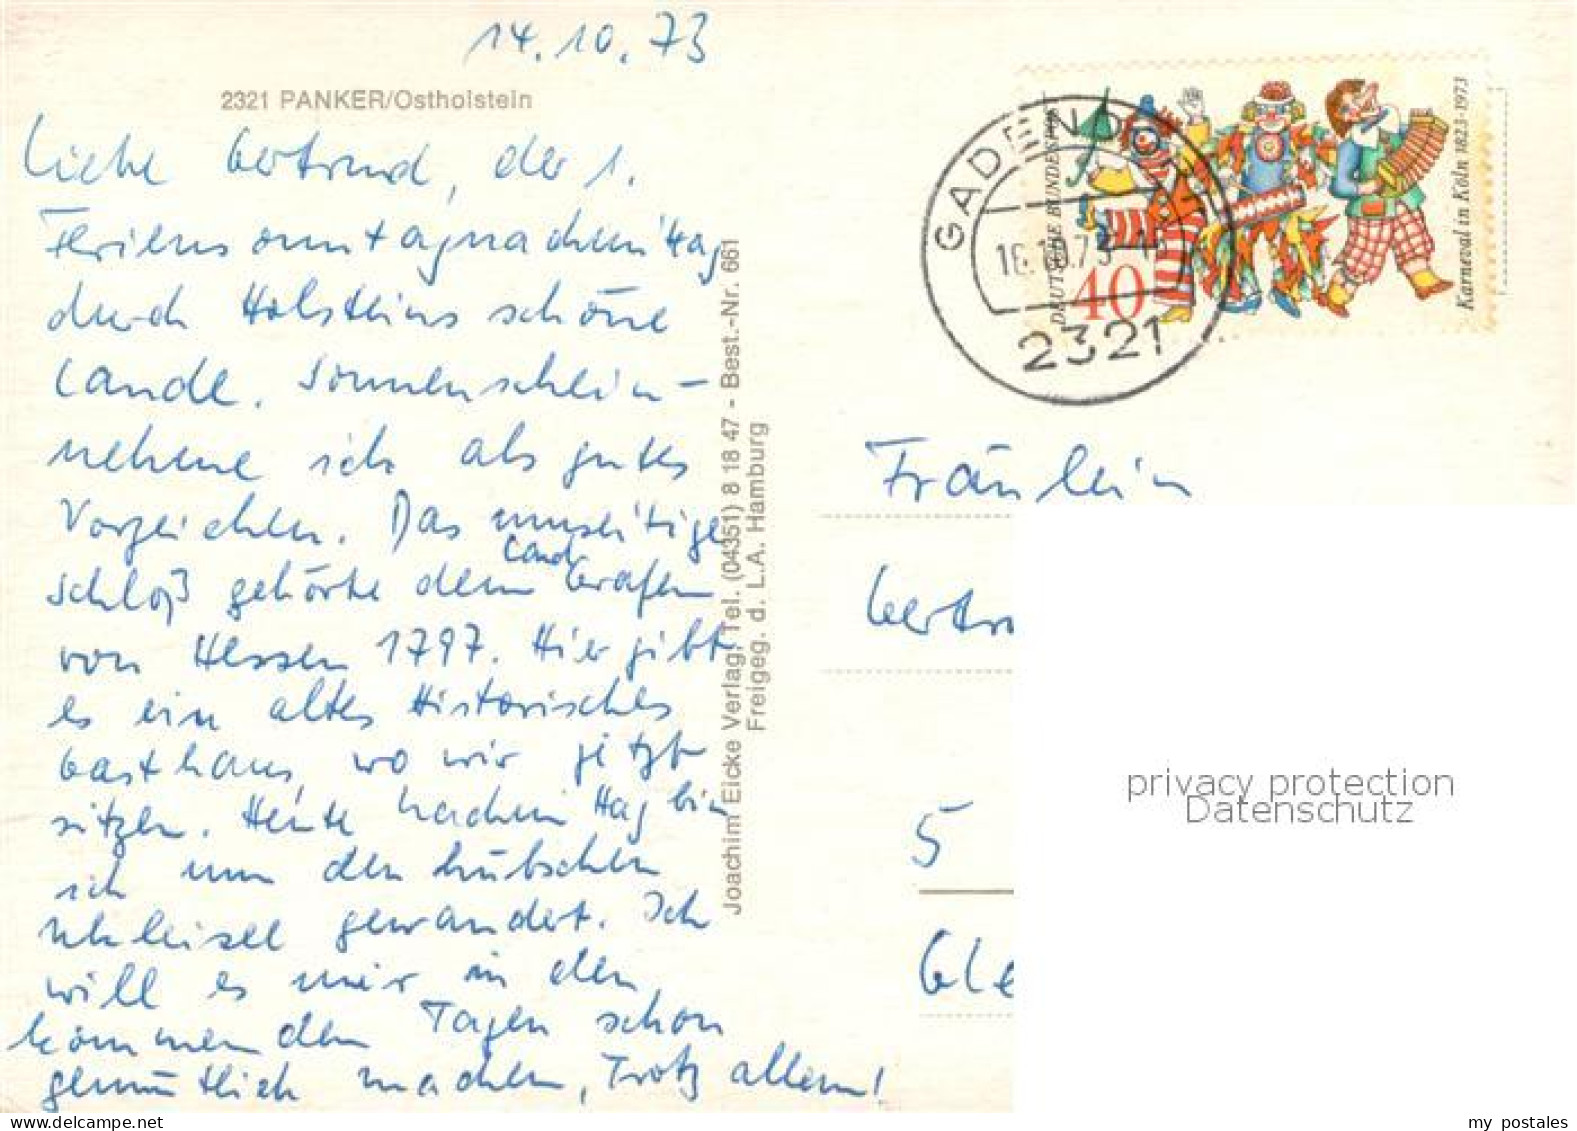 14.10.73
2321 PANKER/Ostholstein
Liebe Gertrud, der 1.
Feriensonntagnachmittag
durch Holsteins schöne
Lande. Sonnenschein –
nehme ich als gutes
Vorzeichen. Das
Land
Schloß gehörte dem Grafen
von Hessen 1797. Hier gibt
es ein altes Historisches
Gasthaus, wo wir jetzt
sitzen. Heute Nachmittag bin
ich um den hübschen
gewandert. Ich
will es mir in den
kommenden Tagen schon
gemütlich machen, Trotz allem!
Joachim Eicke Verlag, Tel. (04351) 8 18 47 - Best.-Nr. 661
Freigeg. d. L.A. Hamburg
GADENDORF
16.10.73
2321
DEUTSCHE BUNDESPOST
40
Karneval in Köln 1823-1973
Fräulein
Gertru
5
Gle
privacy protection
Datenschutz
my postales